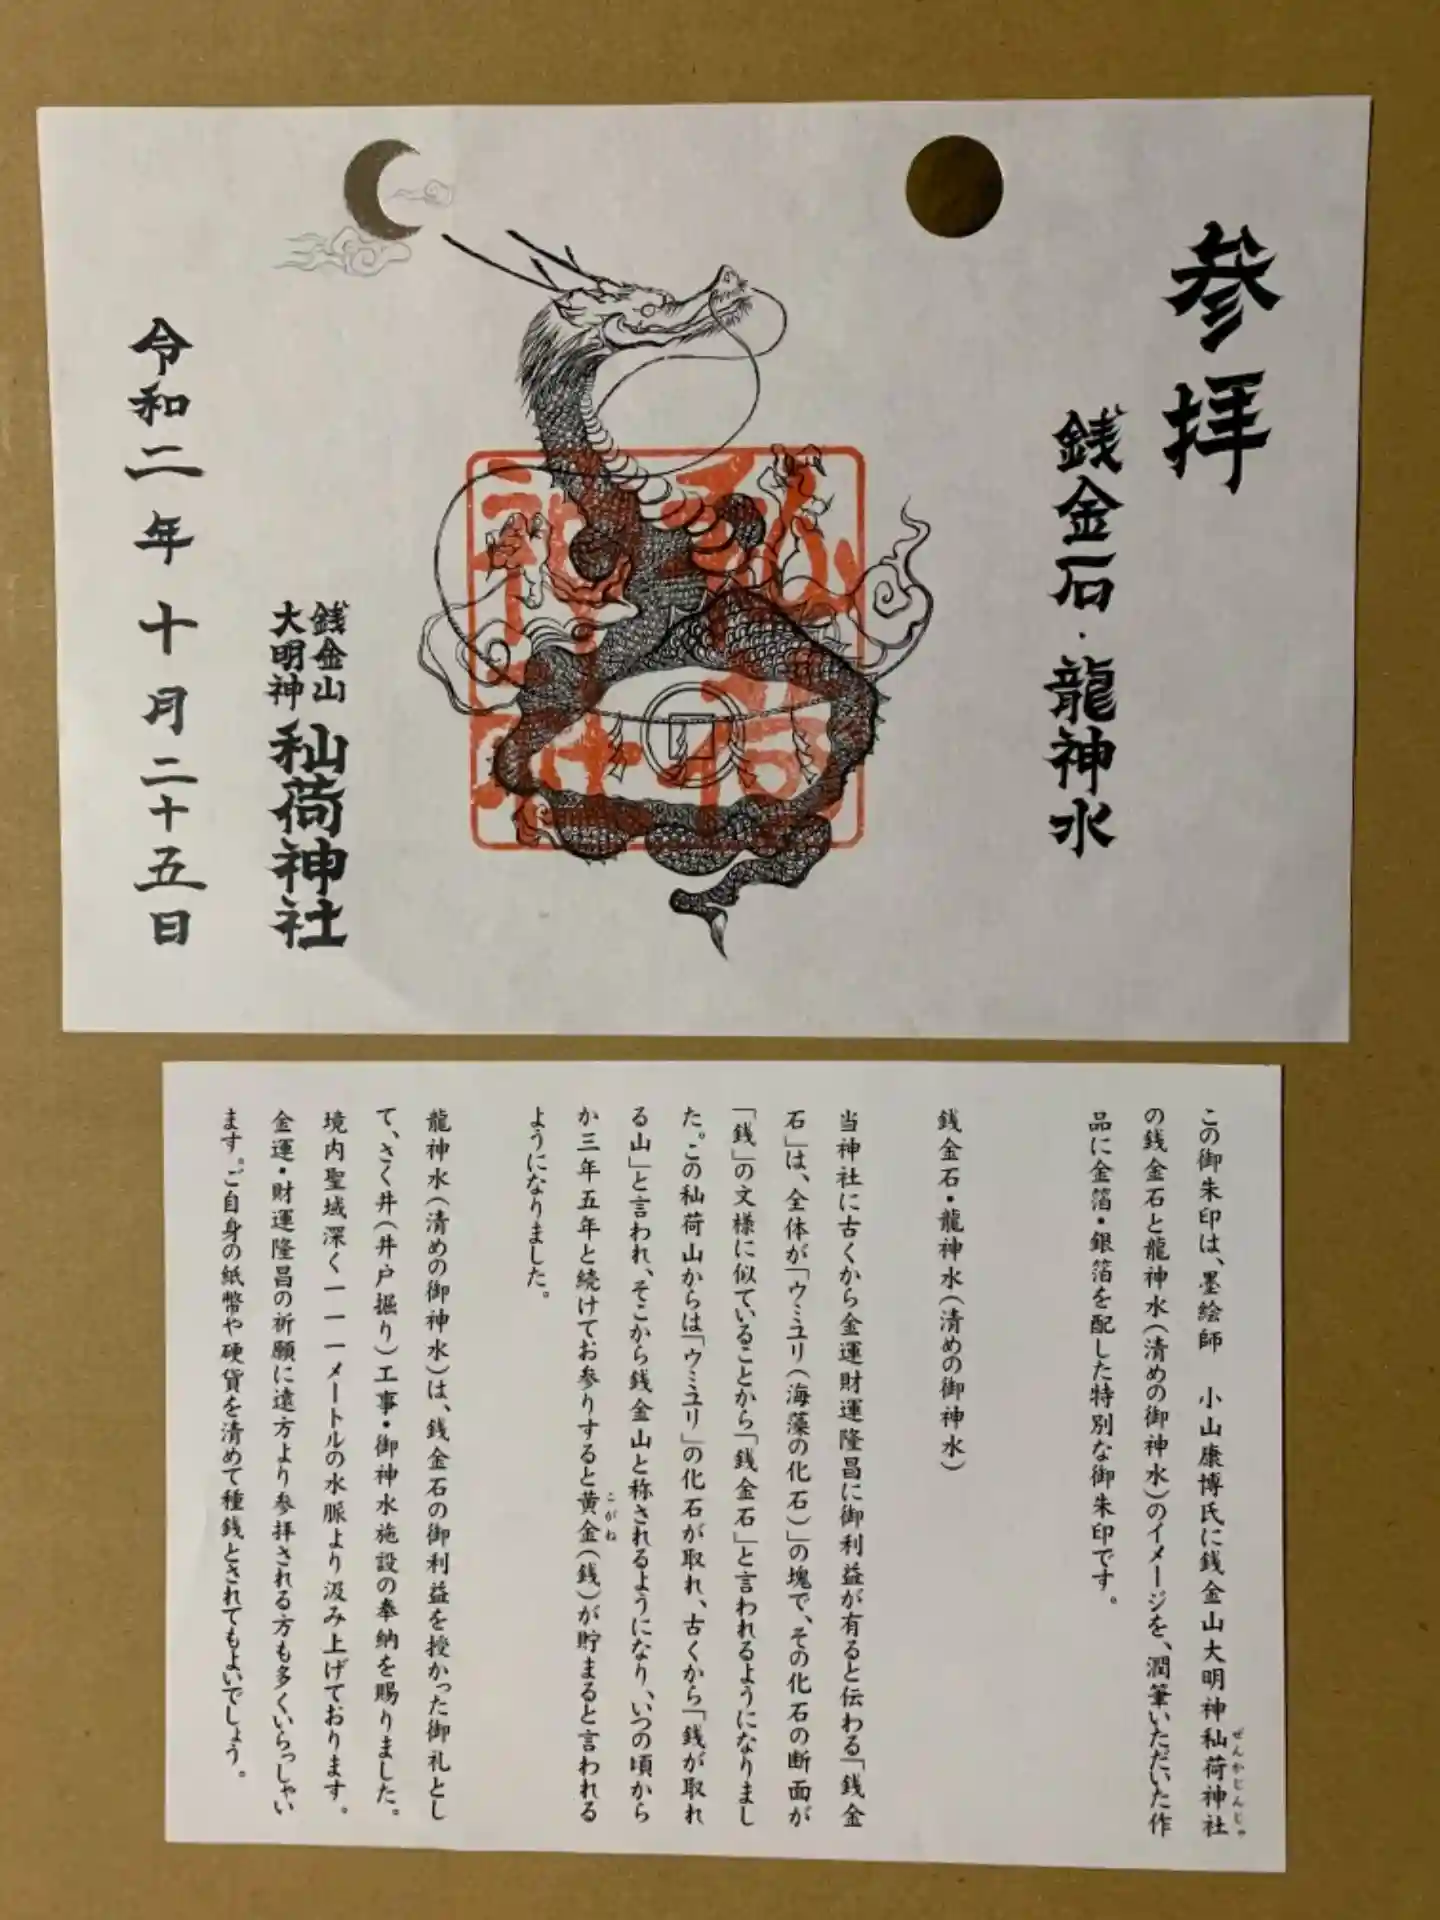 参拝
銭金石・龍神水
銭金山
大明神
秈荷神社
令和二年十月二十五日
秈荷
神社
この御朱印は、墨絵師　小山康博氏に銭金山大明神秈荷神社
ぜんかじんじゃ
の銭金石と龍神水（清めの御神水）のイメージを、潤筆いただいた作
品に金箔・銀箔を配した特別な御朱印です。
銭金石・龍神水（清めの御神水）
当神社に古くから金運財運隆昌に御利益が有ると伝わる「銭金
石」は、全体が「ウミユリ（海藻の化石）」の塊で、その化石の断面が
「銭」の文様に似ていることから「銭金石」と言われるようになりまし
た。この秈荷山からは「ウミユリ」の化石が取れ、古くから「銭が取れ
る山」と言われ、そこから銭金山と称されるようになり、いつの頃から
か三年五年と続けてお参りすると黄金（銭）が貯まると言われる
こがね
ようになりました。
龍神水（清めの御神水）は、銭金石の御利益を授かった御礼とし
て、さく井（井戸掘り）工事・御神水施設の奉納を賜りました。
境内聖域深く一一一メートルの水脈より汲み上げております。
金運・財運隆昌の祈願に遠方より参拝される方も多くいらっしゃい
ます。ご自身の紙幣や硬貨を清めて種銭とされてもよいでしょう。